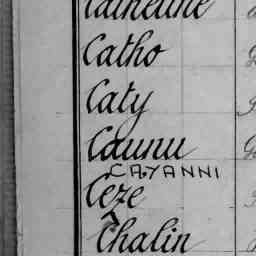 Catherine
Catho
Caty
Caunu
CAYANNI
Ceze
Chalin